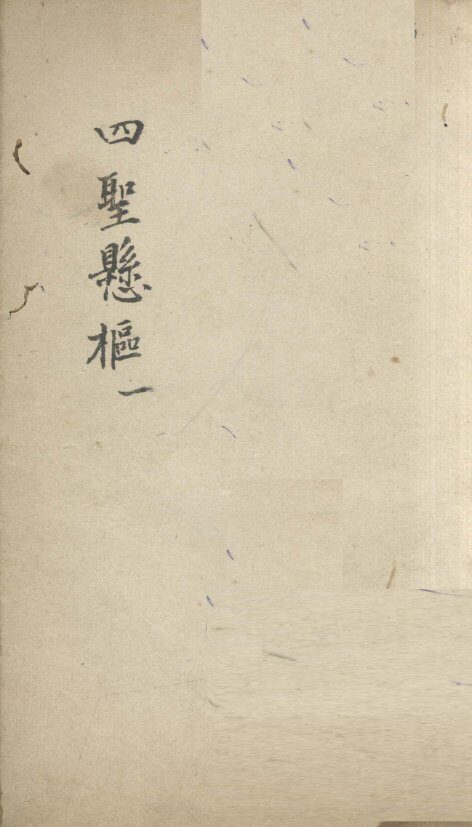 四聖懸樞一